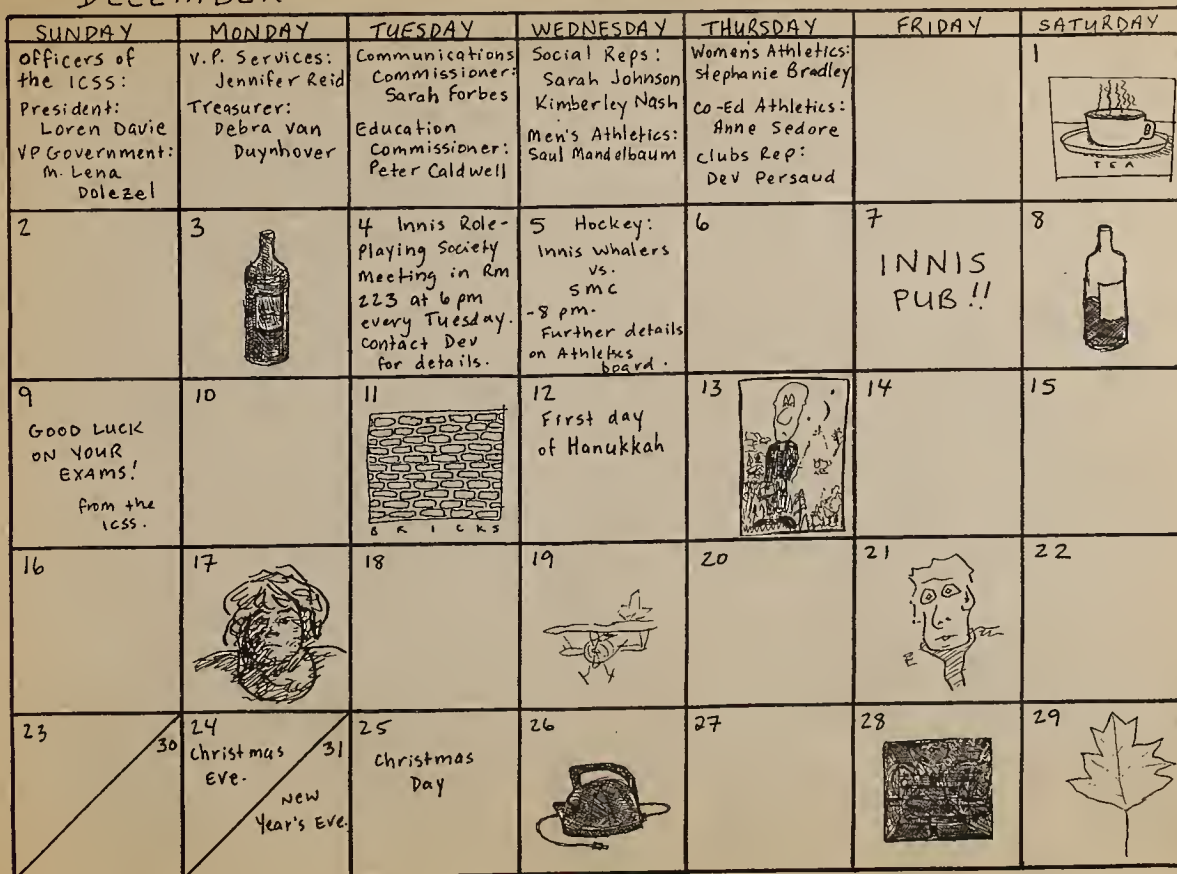 DECEMBER
SUNDAY
MONDAY
TUESDAY
WEDNESDAY
THURSDAY
FRIDAY
SATURDAY
Officers of
the ICSS:
President:
Loren Davie
VP Government:
M. Lena
Dolezel
V.P. Services:
Jennifer Reid
Treasurer:
Debra Van
Duynhover
Communications
Commissioner:
Sarah Forbes
Education
Commissioner:
Peter Caldwell
Social Reps:
Sarah Johnson
Kimberley Nash
Men's Athletics:
Saul Mandelbaum
Women's Athletics:
Stephanie Bradley
Co-Ed Athletics:
Anne Sedore
Clubs Rep:
Dev Persaud
1
TEA
2
3
4 Innis Role-
Playing Society
Meeting in Rm
223 at 6 pm
every Tuesday.
Contact Dev
for details.
5 Hockey:
Innis Whalers
vs.
SMC
-8 pm.
Further details
on Athletics
board.
6
7
INNIS
PUB!!
8
9
GOOD LUCK
ON YOUR
EXAMS!
from the
ICSS.
10
11
BRICKS
12
First day
of Hanukkah
13
14
15
16
17
18
19
20
21
22
23
30
24
Christmas
Eve.
31
New
Year's Eve.
25
Christmas
Day
26
27
28
29